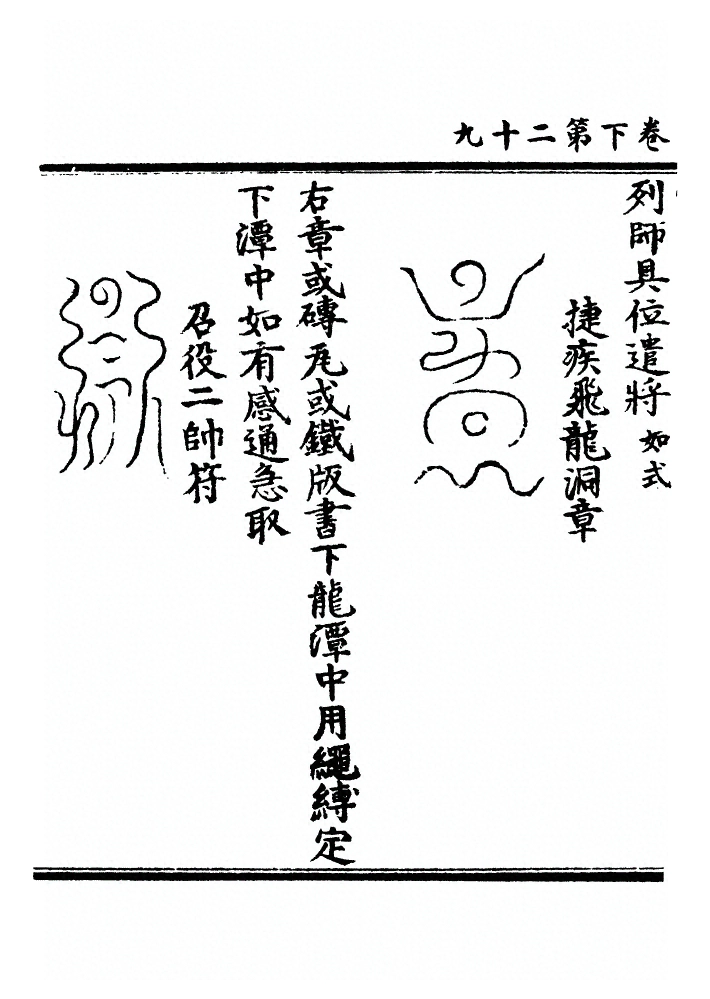 卷下第二十九
列師具位遣將如式
捷疾飛龍洞章
右章或磚瓦或鐵版書下龍潭中用繩縛定
下潭中如有感通急取
召役二帥符